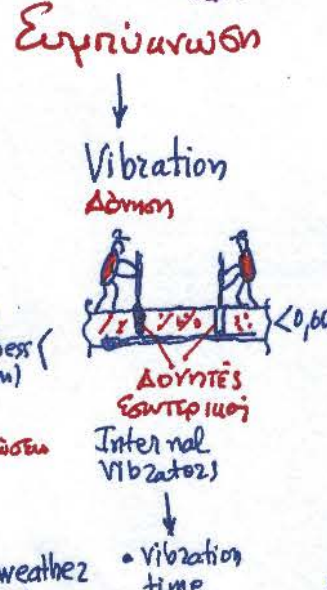 Συμπύκνωση
Vibration
Δόνηση
<0,60
Δονητές
Εσωτερικοί
Internal
Vibrators
weather
• vibration
time